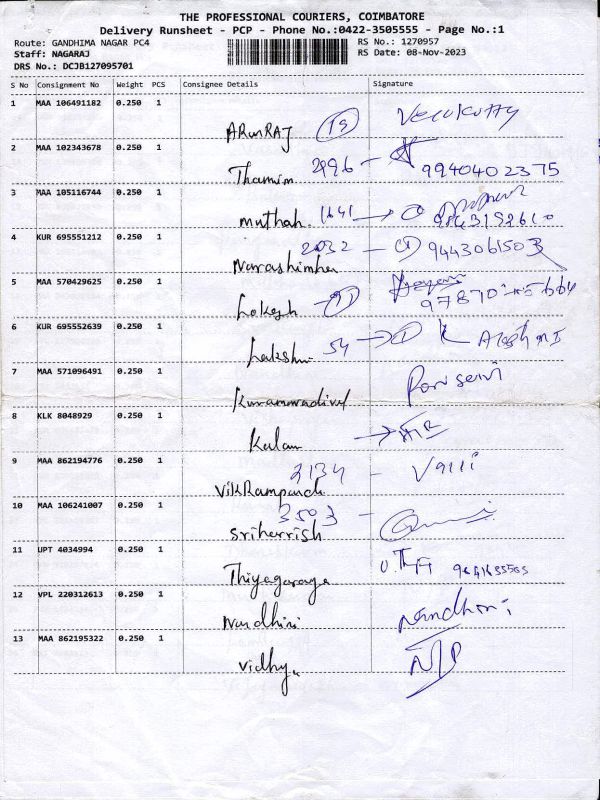 THE PROFESSIONAL COURIERS, COIMBATORE
Delivery Runsheet - PCP - Phone No.:0422-3505555 - Page No.:1
Route: GANDHIMA NAGAR PC4 RS No.: 1270957
Staff: NAGARAJ RS Date: 08-Nov-2023
DRS No.: DCJB127095701
S No Consignment No Weight PCS Consignee Details Signature
1 MAA 106491182 0.250 1
ARunRAJ
2 MAA 102343678 0.250 1
Thamim 2496 9940402375
3 MAA 105116744 0.250 1
muthah. 1641
4 KUR 695551212 0.250 1
Narashimha 2032 9443061503
5 MAA 570429625 0.250 1
Lokesh
6 KUR 695552639 0.250 1
Lakshmi 54
7 MAA 571096491 0.250 1
8 KLK 8048929 0.250 1
Kalam
9 MAA 862194776 0.250 1
2134 Valli
10 MAA 106241007 0.250 1
3503
Sriharrish
11 UPT 4034994 0.250 1
Thiyagaraga
12 VPL 220312613 0.250 1
Nandhini Nandhini
13 MAA 862195322 0.250 1
Vidhya